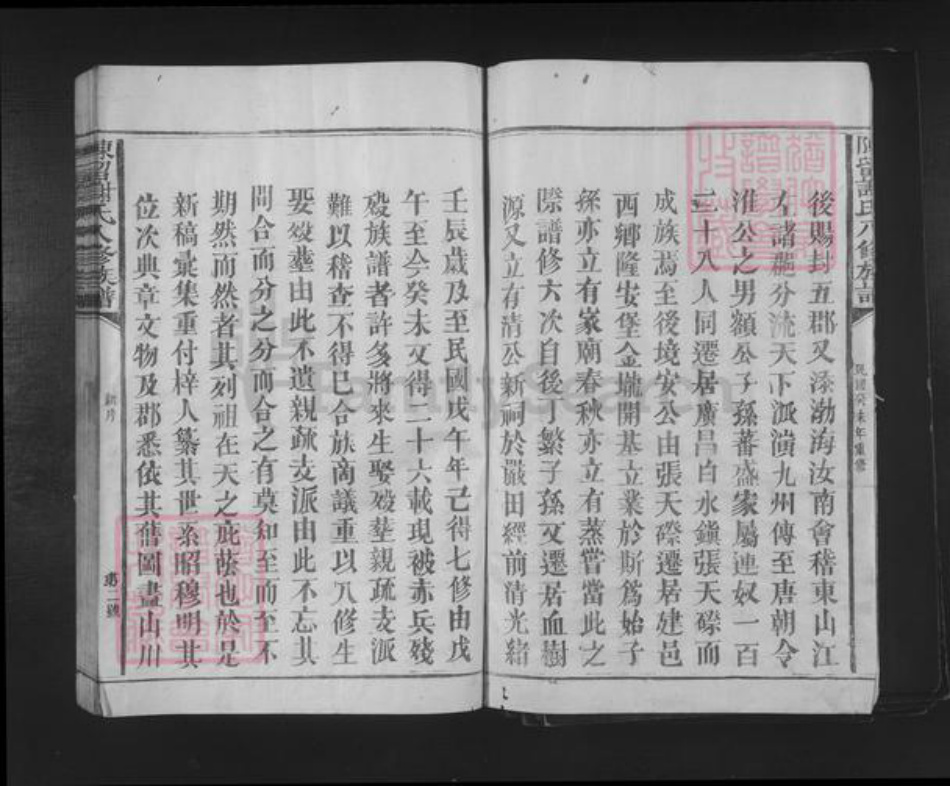 後賜封五郡又添渤海汝南會稽東山江
左諸郡分流天下派演九州傳至唐朝令
淮公之男額公子孫蕃盛家屬連奴一百
三十八人同遷居廣昌白水鎮張天磜而
成族焉至後境安公由張天磜遷居建邑
西鄉隆安堡金壠開基立業於斯爲始子
孫亦立有家廟春秋亦立有蒸嘗當此之
際譜修六次自後丁繁子孫又遷居血樹
源又立有清公新祠於嚴田經前清光緒
壬辰歲及至民國戊午年己得七修由戊
午至今癸未又得二十六載現被赤兵殘
毀族譜者許多將來生娶歿塟親疏支派
難以稽查不得已合族商議重以八修生
娶歿塟由此不遺親疎支派由此不忘其
間合而分之分而合之有莫知至而至不
期然而然者其列祖在天之庇蔭也於是
新稿彙集重付梓人纂其世系昭穆明其
位次典章文物及郡悉依其舊圖畫山川
陳留謝氏八修族譜
民國癸未年重修
陳留謝氏八修族譜
第二號